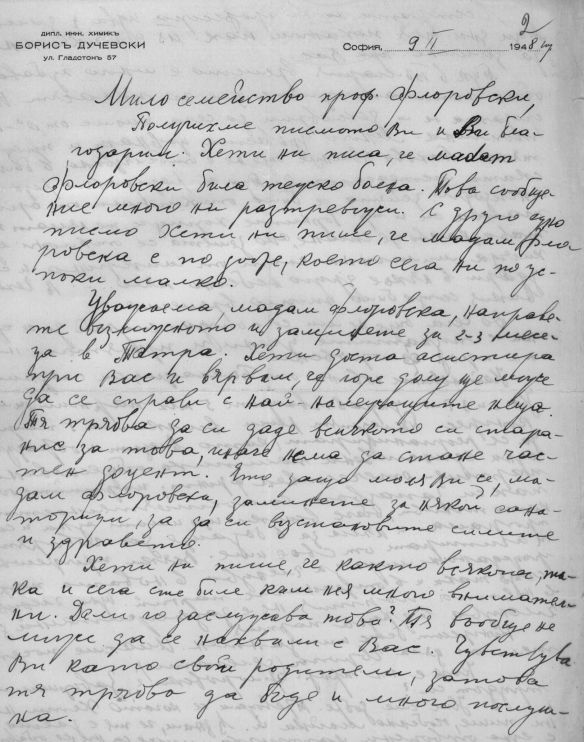 дипл. инж. химикъ
БОРИСЪ ДУЧЕВСКИ
ул. Гладстонъ 57
София, 9 II 1948
2
Мило семейство проф. Флоровски,
Получихме писмото Ви и Ви бла-
годарим. Хети ни писа, че мадам
Флоровски била тежко болна. Това сообще-
ние много ни разтревожи. С друго едно
писмо Хети ни пише, че мадам Фло
ровска е по добре, което сега ни поус-
покои малко.
Уважаема, мадам Флоровска, направе-
те възможното и заминете за 2-3 месе-
ца в Татра. Хети доста асистира
при Вас и вярвам, че горе долу ще може
да се справи с най-належащите неща.
Тя трябва да си даде всичкото си стара-
ние за това, иначе нема да стане час-
тен доцент. Ето защо моля Ви се, ма-
дам Флоровска, заминете за някой сана-
ториум, за да си възстановите силите
и здравето.
Хети ни пише, че както всякога, та-
ка и сега сте биле към нея много внимател-
ни. Дали го заслужава това? Тя въобще не
може да се нахвали с Вас. Чувствува
Ви като свои родители, затова
тя трябва да бъде и много послуш-
на.